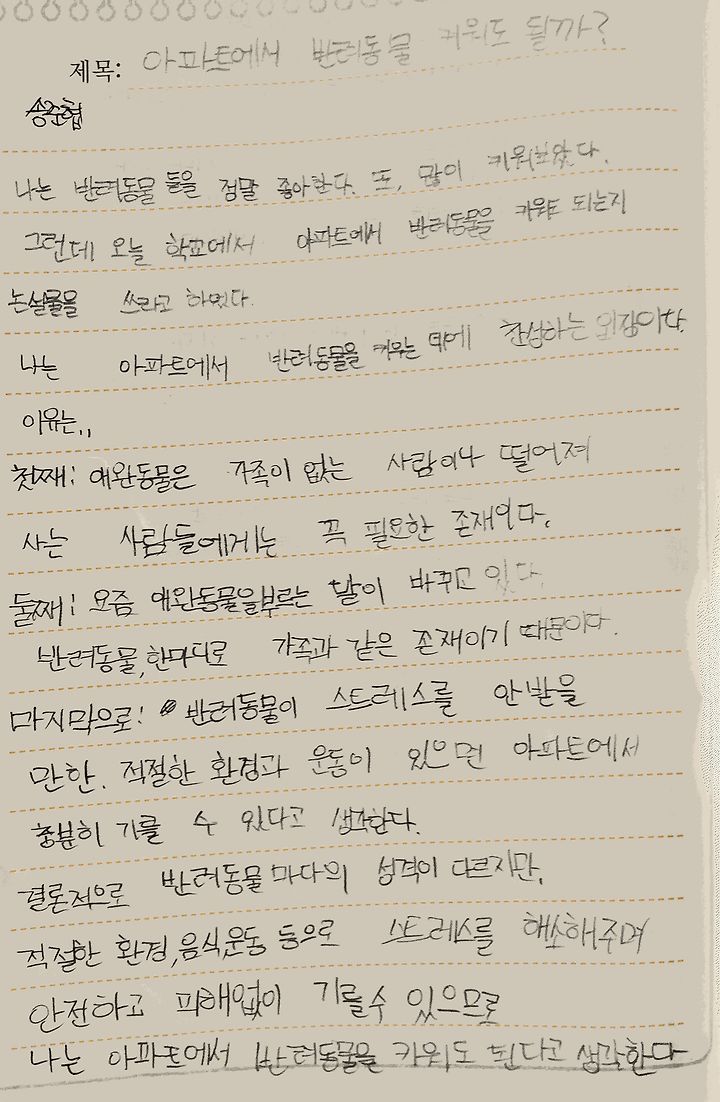 제목: 아파트에서 반려동물 키워도 될까?
송준협
나는 반려동물 들을 정말 좋아한다. 또, 많이 키워보았다.
그런데 오늘 학교에서 아파트에서 반려동물을 키워도 되는지
논설물을 쓰라고 하였다.
나는 아파트에서 반려동물을 키우는 것에 찬성하는 입장이다.
이유는,,
첫째: 애완동물은 가족이 없는 사람이나 떨어져
사는 사람들에게는 꼭 필요한 존재이다.
둘째: 요즘 애완동물을부르는 말이 바꾸고 있다.
반려동물,한마디로 가족과 같은 존재이기 때문이다.
마지막으로! 반려동물이 스트레스를 안 받을
만한. 적절한 환경과 운동이 있으면 아파트에서
충분히 기를 수 있다고 생각한다.
결론적으로 반려동물마다의 성격이 다르지만,
적절한 환경,음식,운동 등으로 스트레스를 해소해주며
안전하고 피해없이 기를수 있으므로
나는 아파트에서 반려동물을 키워도 된다고 생각한다